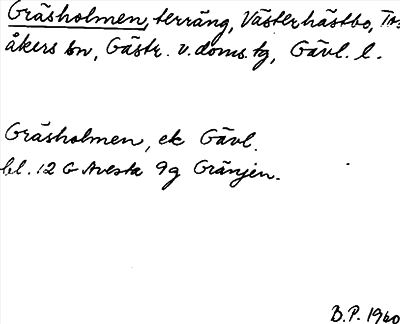 Gräsholmen, terräng, Västerhästbo, Tors-
åkers sn, Gästr. v. doms. tg, Gävl. l.
Gräsholmen, ek Gävl.
bl. 12 G Avesta 9g Gränjen.
B.P. 1960